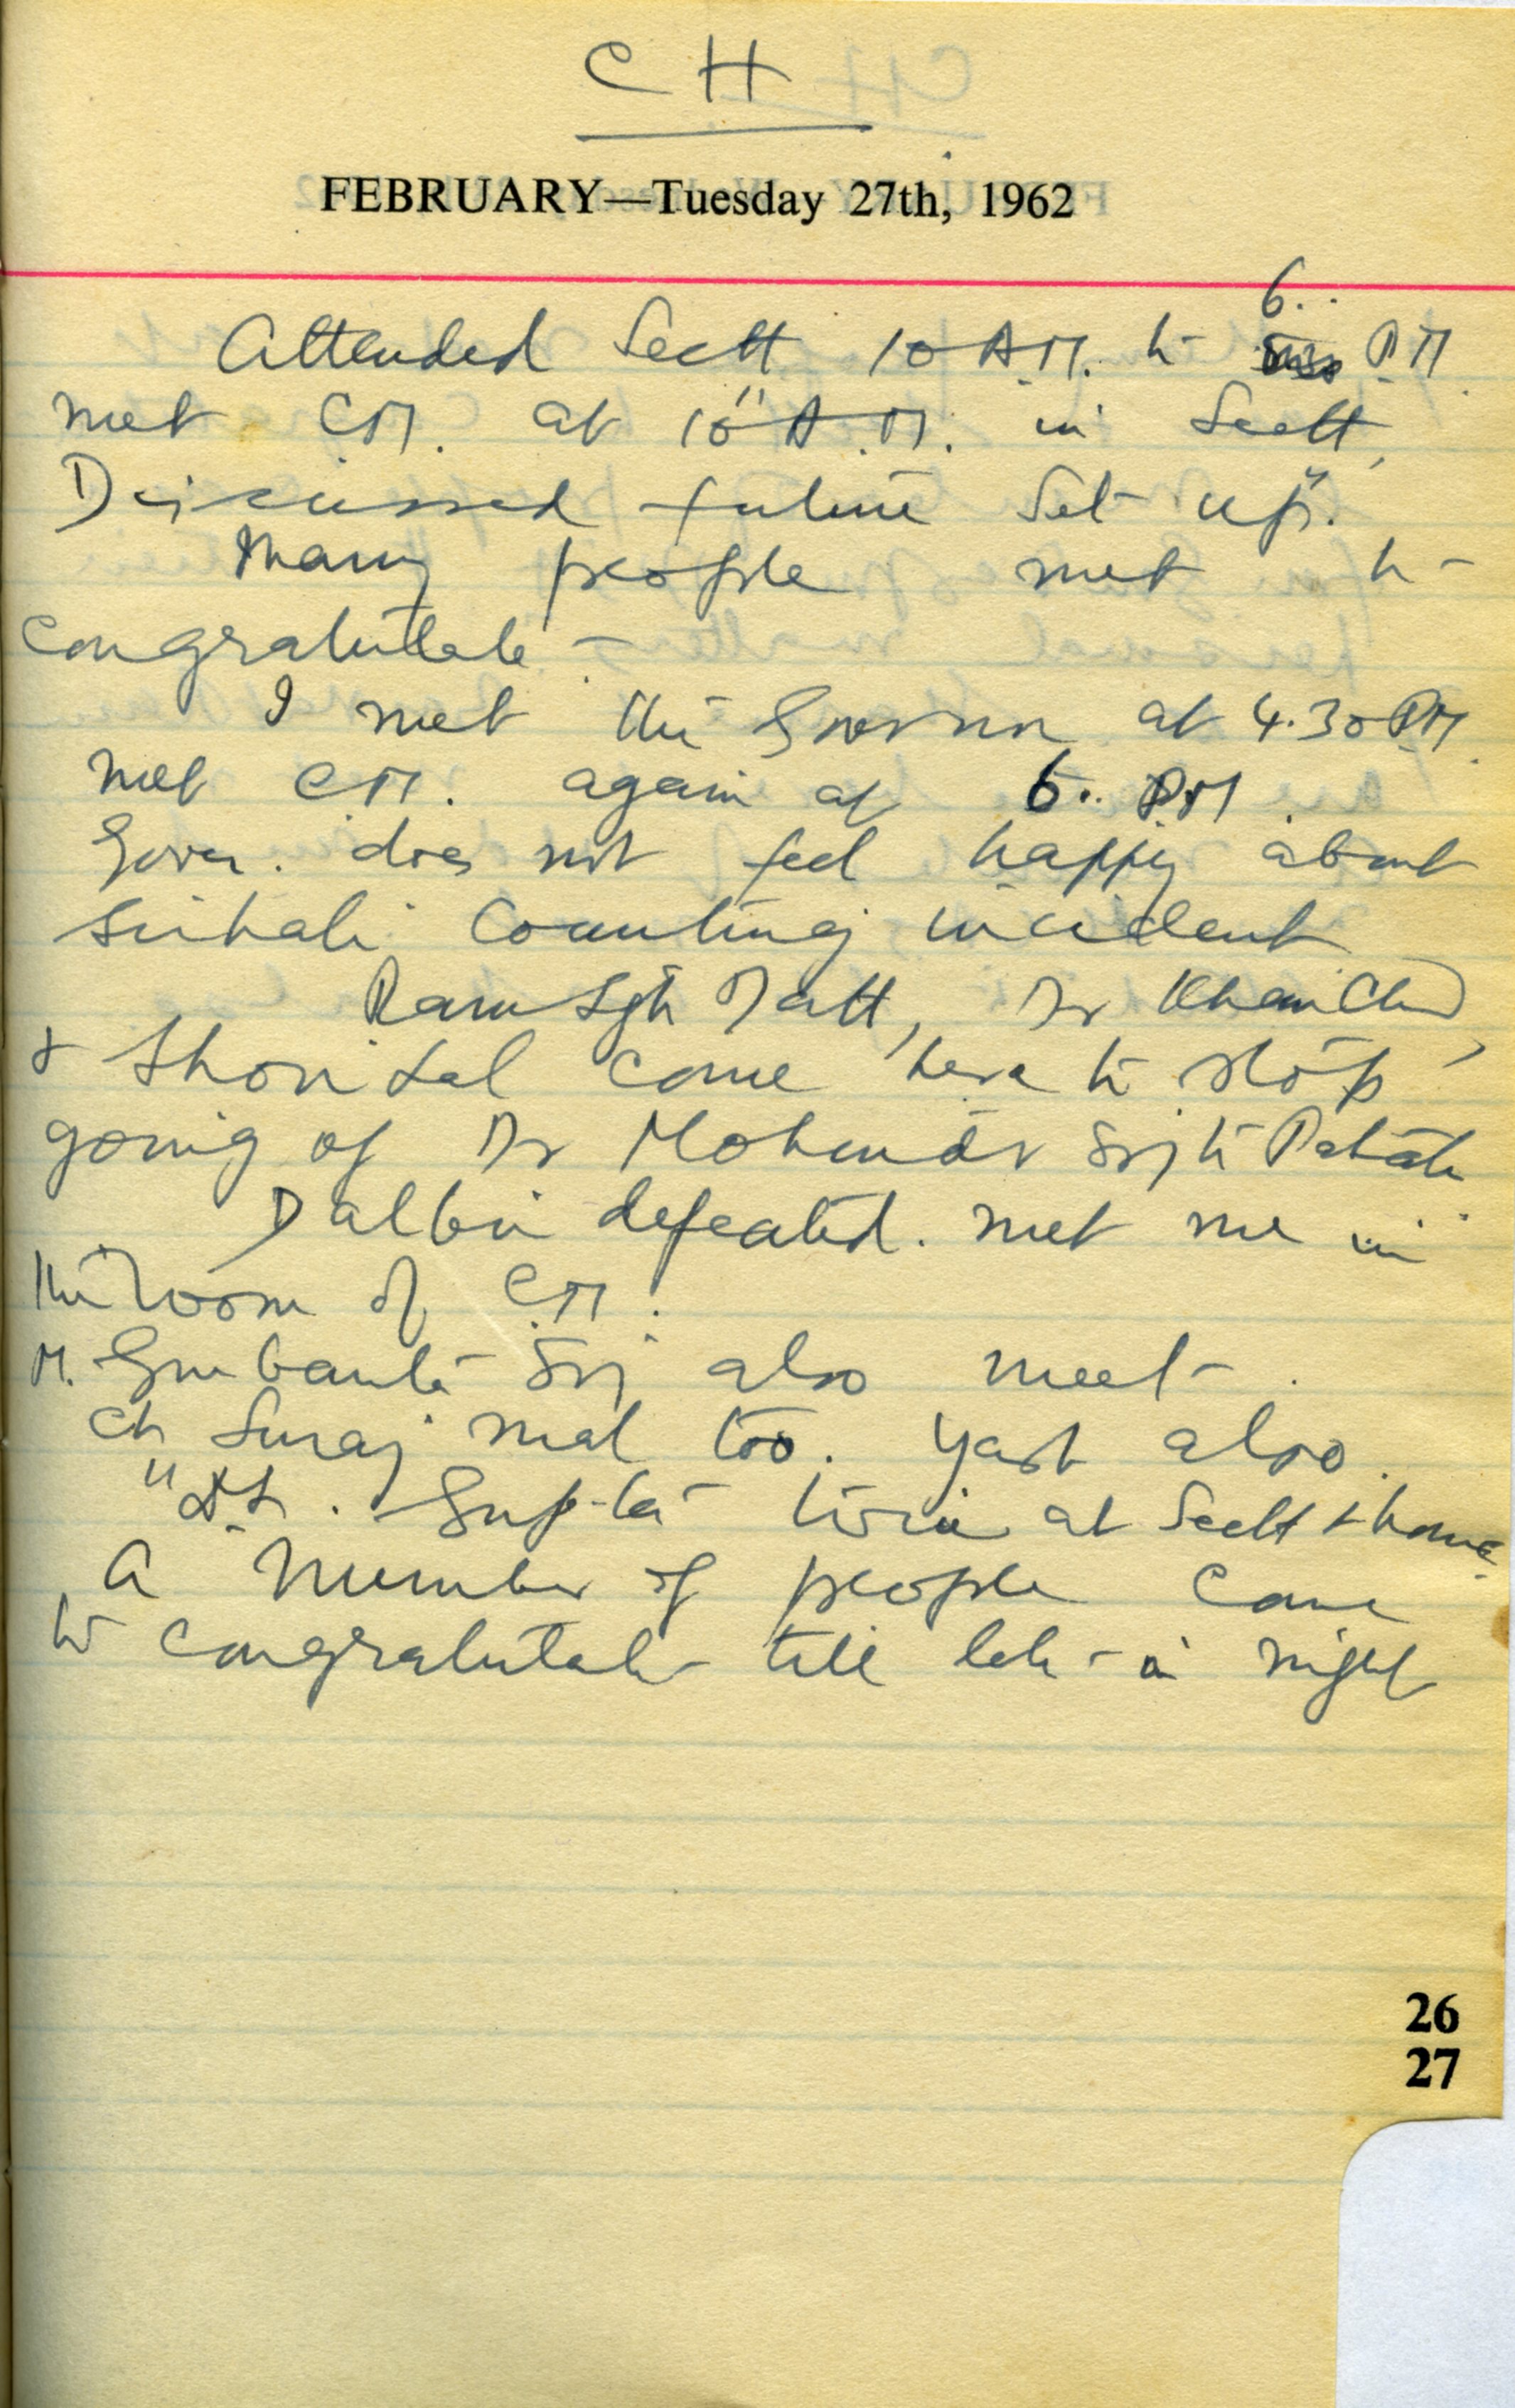 CH
FEBRUARY—Tuesday 27th, 1962
6..
Attended Sectt 10 A.M. to P.M.
met C.M. at 10 A.M. in Sectt,
Discussed future set up.
Many people met to
congratulate.
I met the Governor at 4.30 P.M.
met C.M. again at 6.. P.M.
Gover. does not feel happy about
counting incident
Ram Sgh Datt, Dr Khem Chd,
& Shori Lal came here to stop
going of Dr Mohendar
Dalbir defeated. met me in
the room of C.M.
M. Gurbanta also meet.
Ch Suraj mal too. Yash also.
" D.D. Gupta twice at Sectt & home
A Number of people came
to congratulate till late in night
26
27